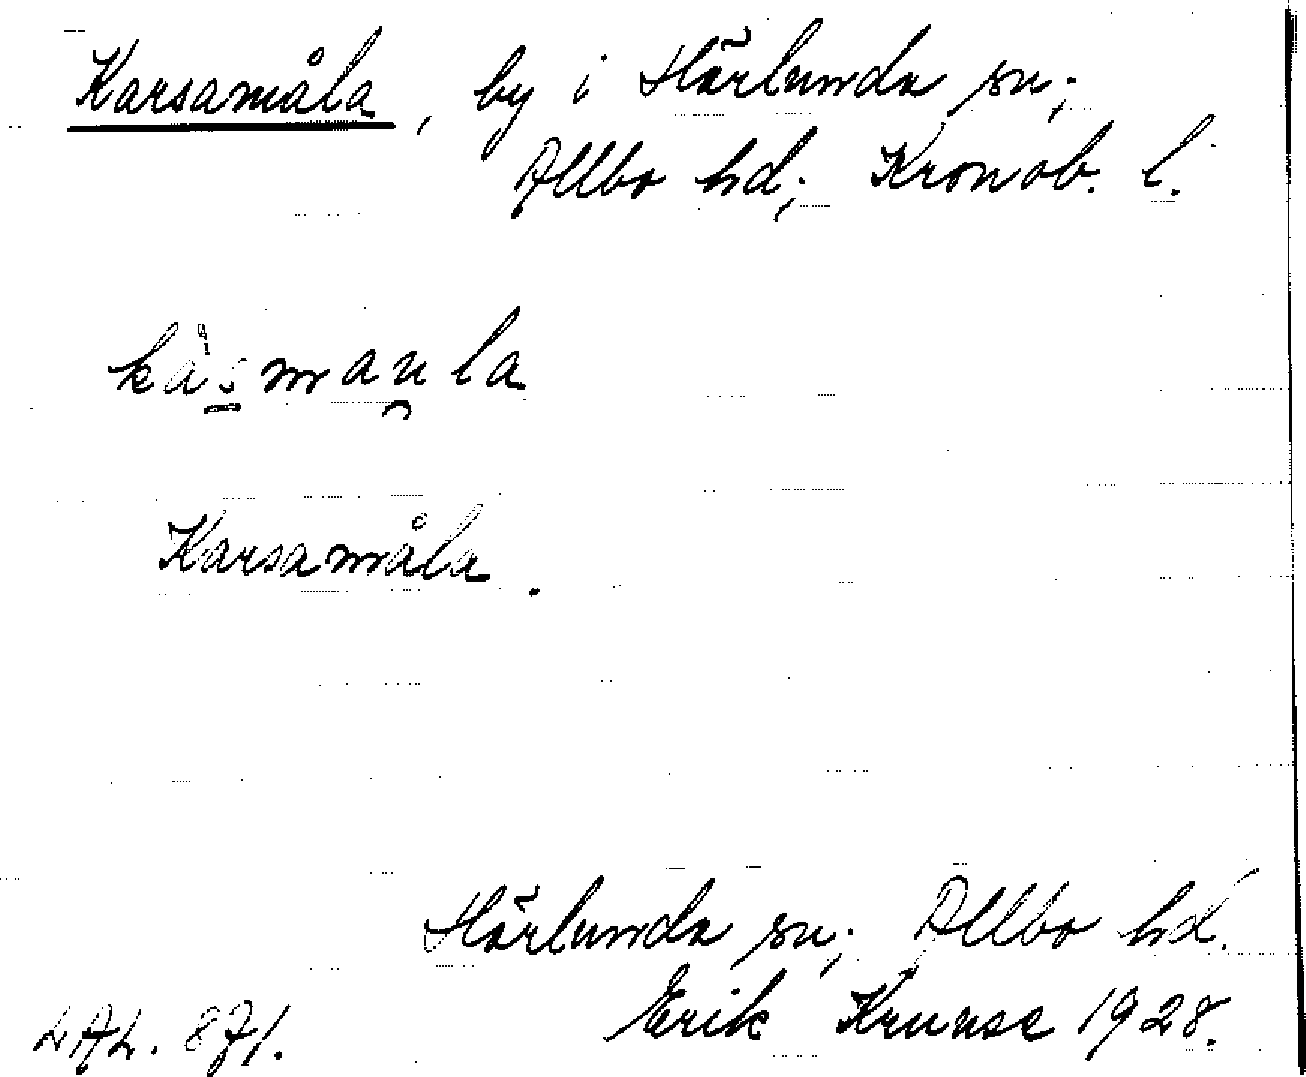 Karsamåla, by i Härlunda sn;
Allbo hd; Kronob. l.
kàsmau̯la
Karsamåla.
Härlunda sn; Allbo hd.
LAL. 871.
Erik Kruuse 1928.